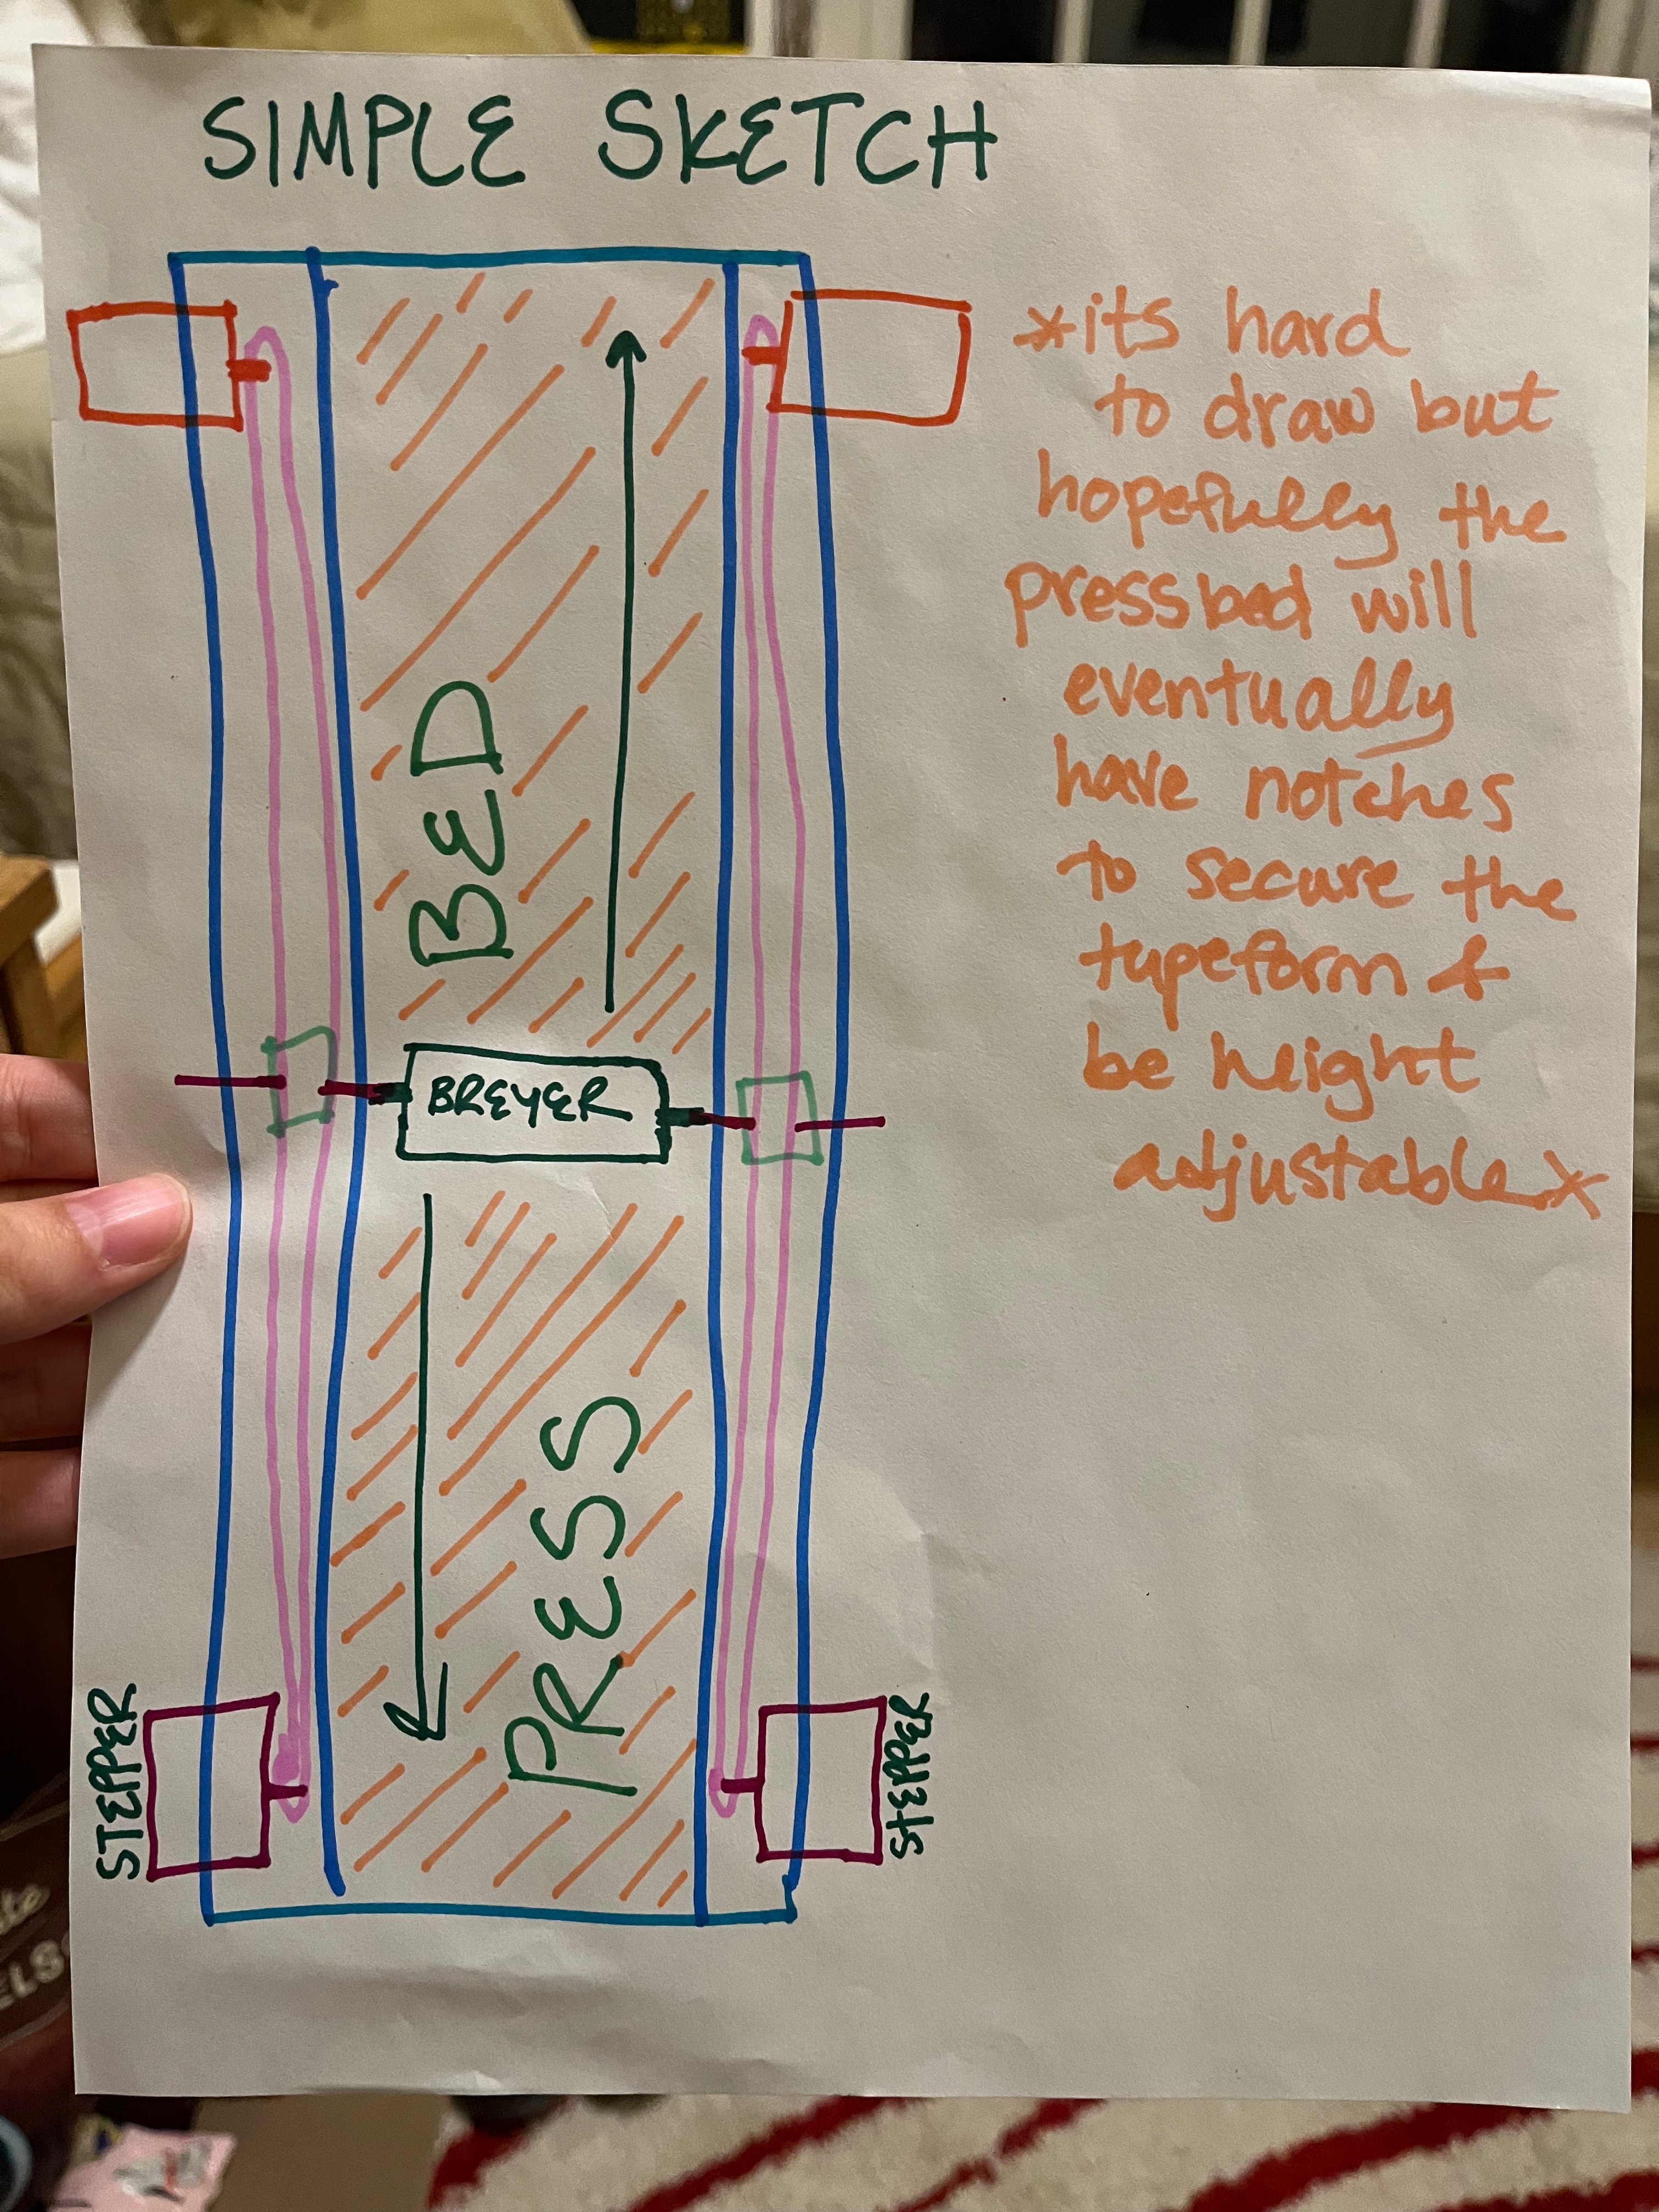 SIMPLE SKETCH
*its hard
to draw but
hopefully the
pressbed will
eventually
have notches
to secure the
typeform &
be height
adjustable*
BED
BREYER
PRESS
STEPPER
STEPPER